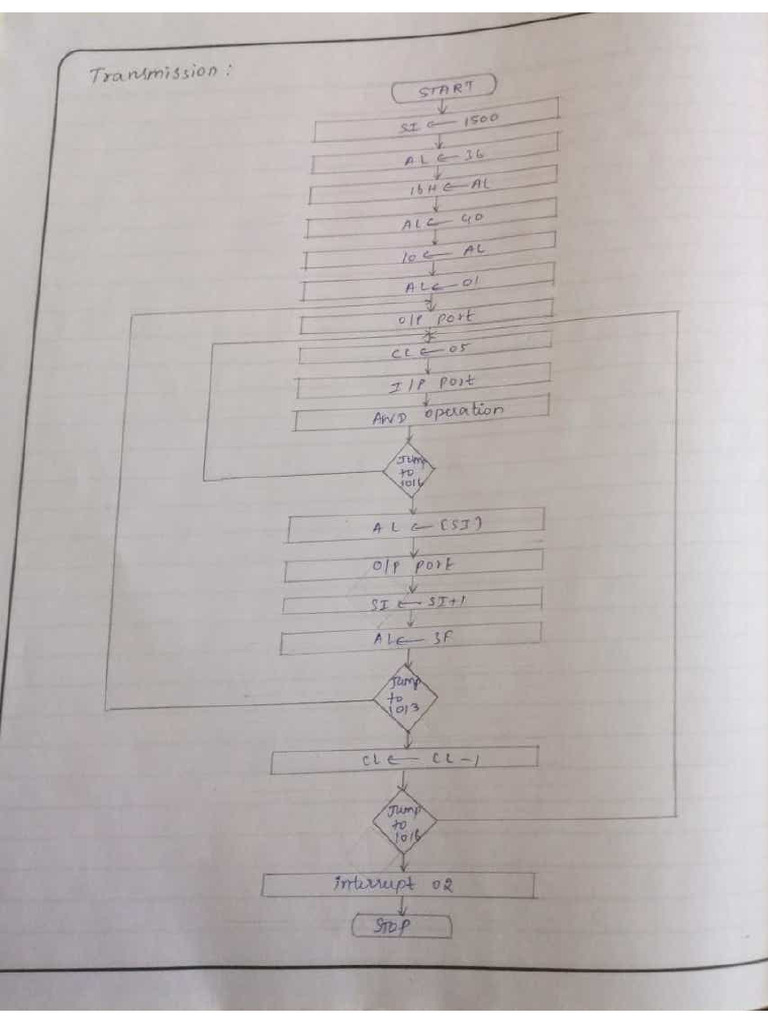 Transmission :
START
SI ← 1500
AL ← 36
16H ← AL
AL ← 40
10 ← AL
AL ← 01
O/P port
CL ← 05
I/P port
AND operation
Jump
to
1016
AL ← [SI]
O/P port
SI ← SI+1
AL ← 3F
Jump
to
1013
CL ← CL-1
Jump
to
1016
interrupt 02
STOP